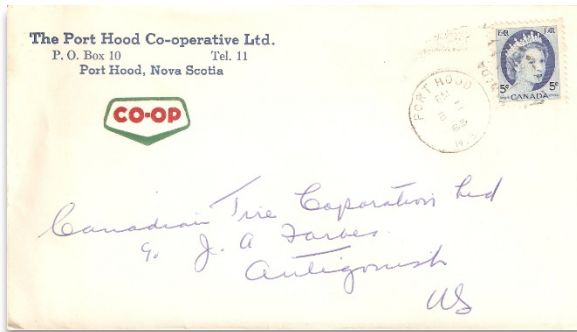 The Port Hood Co-operative Ltd.
P. O. Box 10 Tel. 11
Port Hood, Nova Scotia
CO-OP
PORT HOOD
PM
N.S.
5¢ CANADA 5¢
Canadian Tire Corporation Ltd
℅ J. A Forbes
Antigonish
NS